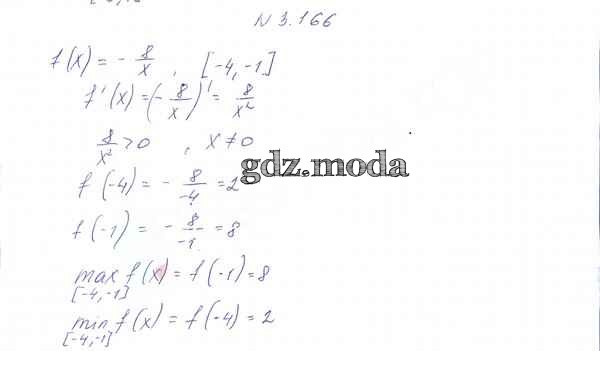 N 3.166
f(x) = - 8/x , [-4,-1]
f'(x) = (- 8/x)' = 8/x²
8/x² > 0 , x ≠ 0
gdz.moda
f(-4) = - 8/-4 = 2
f(-1) = - 8/-1 = 8
max f(x) = f(-1) = 8
[-4,-1]
min f(x) = f(-4) = 2
[-4,-1]